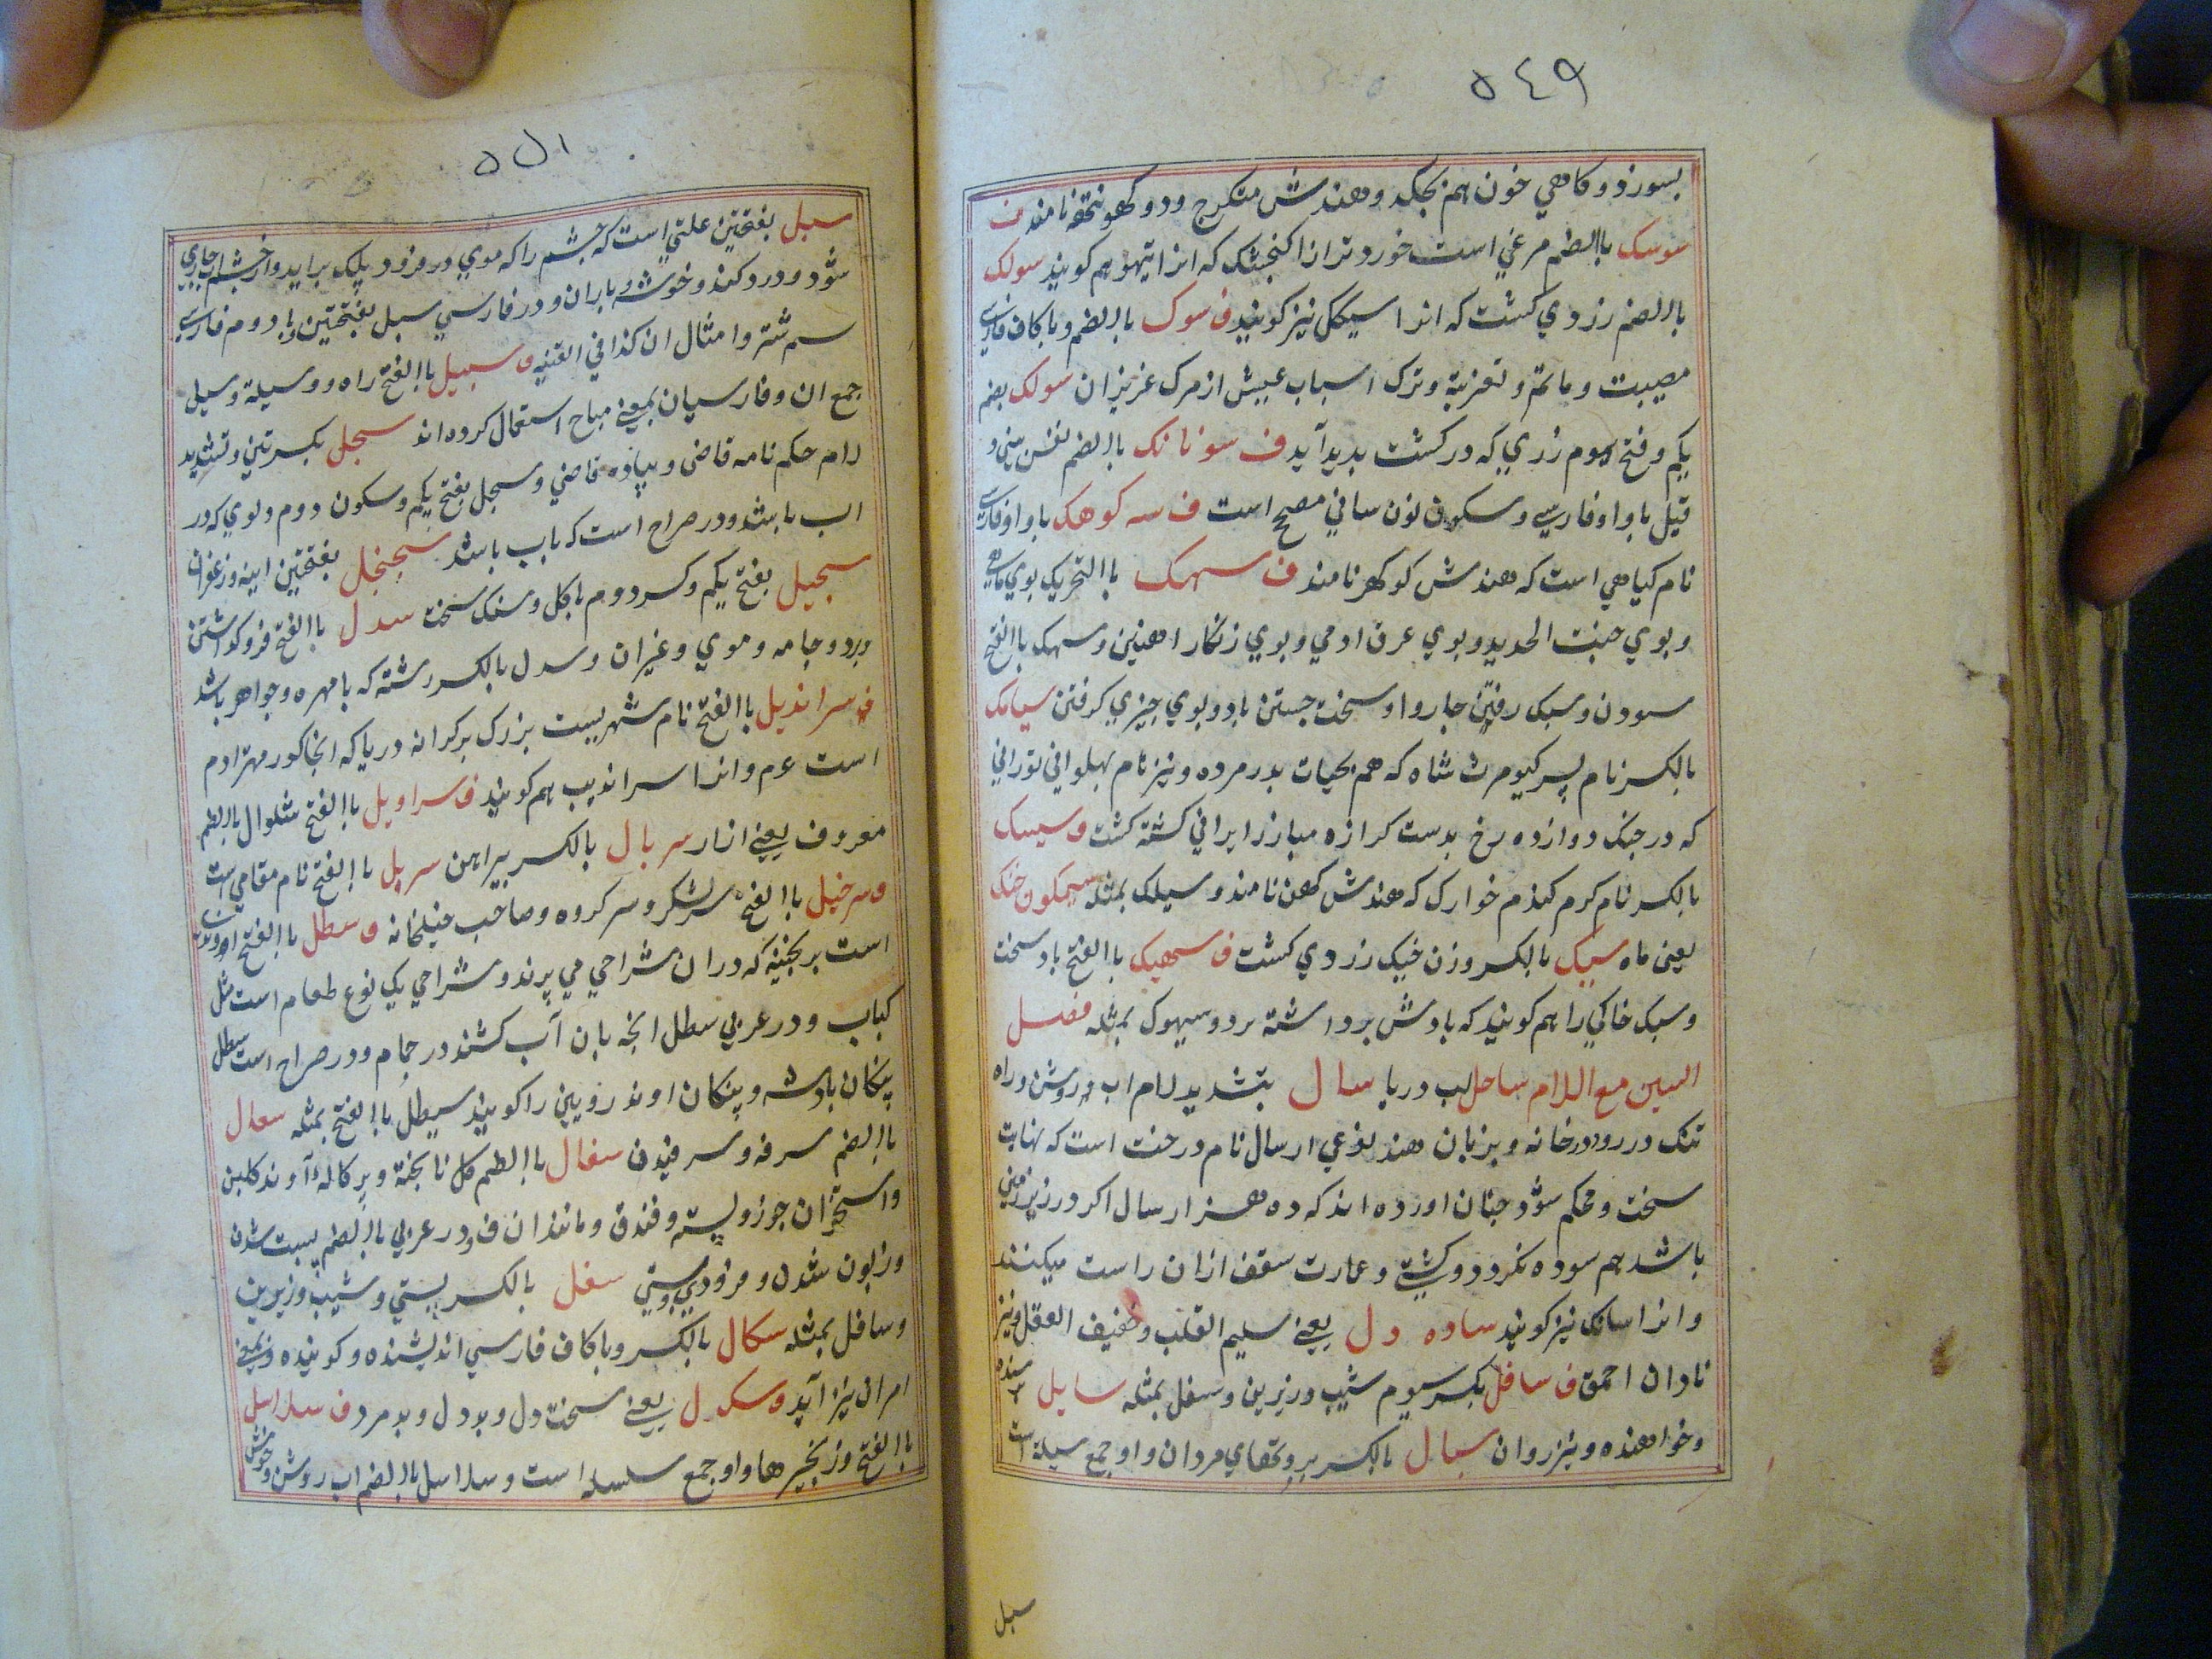 ٥٤٩
بسوزد و كاهي خون هم بچكد و هندش متكرج و دوكهو نتحفه نامند ف
سوسک باالضم مرغي است خورد تر ازا كنجشک كه انرا تيهو هم كويند سولک
باالضم زردي كشت كه انرا سيكل نيز كويند ف سوک باالضم و باكاف فارسي
مصيبت و ماتم و تعزية و ترک اسباب عيش از مرک عزيزان سولک بضم
يكم و فتح دوم زري كه در كشت پديد آيد ف سونانک باالضم نفس بيني و
قيل با واو فارسي و سكون نون ساني مصحح است ف سه كوهک با واو فارسي
نام كياهي است كه هندش كوكهر نامند ف سهک باالتحريک بوي ماهي
و بوي خبث الحديد و بوي عرق ادمي و بوي زنكار اهنين و سهک باالفتح
سودن و سبک رفتن جاروا و سخت جستن باد و بوي چيزي كرفتن سيامک
بالكسر نام پسر كيومرث شاه كه هم بحيات پدر مرده و نيز نام پهلواني توراني
كه در جنک دوازده رخ بدست كرازه مبارز ايراني كشته كشت ف سيسک
بالكسر نام كرم كندم خوارک كه هندش كهن نامند و سيلک بمثله سيمكون خنک
يعني ماه سيک بالكسر وزن خيک زردي كشت ف سهيک باالفتح باد سخت
و سبک خاكي را هم كويند كه بادش برداشته برد و سيهوک بمثله فصل
السين مع اللام ساحل لب دريا سال بتشديد لام اب و روشن و راه
تنک در رودرخانه و بزبان هند نوعي ارسال نام درخت است كه نهايت
سخت و محكم شود چنان اورده اند كه ده هزار سال اكر در زير زمين
باشد هم سوده نكردد و كشتي و عمارت سقف ازان راست ميكنند
و انرا سانک نيز كويند ساده دل يعني سليم القلب و خفيف العقل و نيز
نادان احمق ف سافل بكسر سيوم شيب و زيرين و سفل بمثله سايل
و خواهنده و نيز روان سبال بالكسر بروتهاي مردان و او جمع سبلة است
سبل
٥٥١
سبل بفتحتين علتي است كه چشم را كه موي در فرود پلک برايد و از چشم اب جاري
شود و درد كند و خوشه و باران و در فارسي سبل بفتحتين و با دوم فارسي
سم شتر و امثال ان كذا في القنيه ف سبيل باالفتح راه و وسيلة و سبل
جمع ان و فارسيان بمعني مباح استعمال كرده اند سجل بكسرتين و تشديد
لام حكم نامه قاضي و پياده قاضي و سجل بفتح يكم و سكون دوم دلوي كه در
اب باشد و در صراح است كه باب باشد سجنجل بفتحتين اينه و زعفران
سجيل بفتح يكم و كسر دوم باكل و سنک سخت سدل باالفتح فروكذاشتن
و برد و جامه و موي و غيران و سدل بالكسر رشته كه بامهره و جواهر باشد
ف سرانديل باالفتح نام شهريست بزرک بركرانه دريا كه انجا كور مهتر ادم
است عم و انرا سرانديب هم كويند ف سراويل باالفتح شلوال باالضم
معروف يعني ازار سربال بالكسر پيراهن سرپل باالفتح نام مقامي است
ف سرخيل باالفتح سرلشكر و سركروه و صاحب خيلخانه ف سطل باالفتح
است برنجينه كه دران شراحي مي پزند و شراحي يک نوع طعام است مثل
كباب و در عربي سطل انچه بان آب كشند در حمام و در صراح است سطل
پنكان بادشه و پنكان اوند رويين را كويند سيطل باالفتح بمثله سعال
باالضم سرفه و سرفيدن سفال باالضم كل نابخته و پركاله آوند كلين
و استخوان جوز و پسته و فندق و مانند ان ف و در عربي باالضم پست شدن
و زبون شدن و فرودي و پستي سفل بالكسر پستي و شيب و زيرين
و سافل بمثله سكال بالكسر و باكاف فارسي انديشنده و كوينده و بمعني
امران نيز آيد ف سكدل يعني سخت دل و بددل و بدمرد ف سلاسل
باالفتح و زنجيرها و او جمع سلسله است و سلاسل باالضم اب روشن و خوش